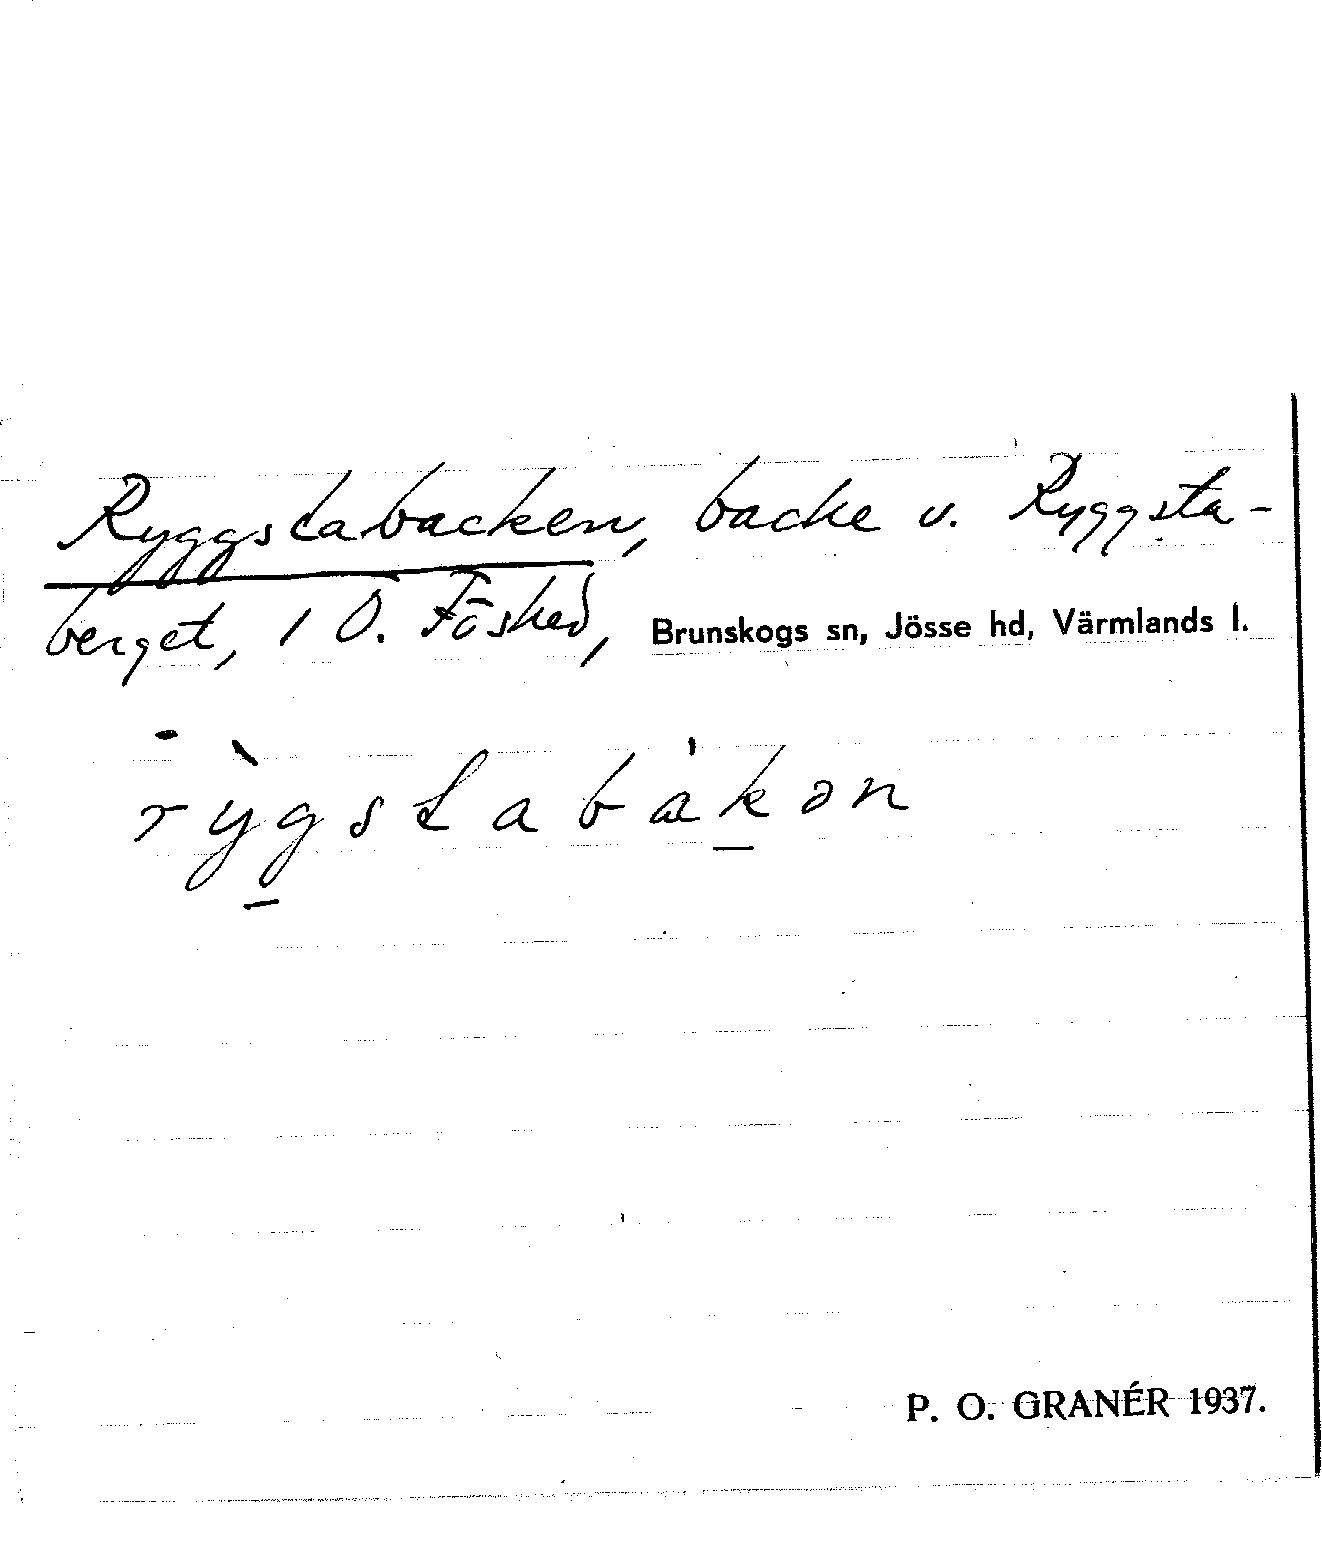 Ryggstabacken, backe v. Ryggsta-
berget, i Ö. Fösked, Brunskogs sn, Jösse hd, Värmlands l.
rỳgstabákən
P. O. GRANÉR 1937.